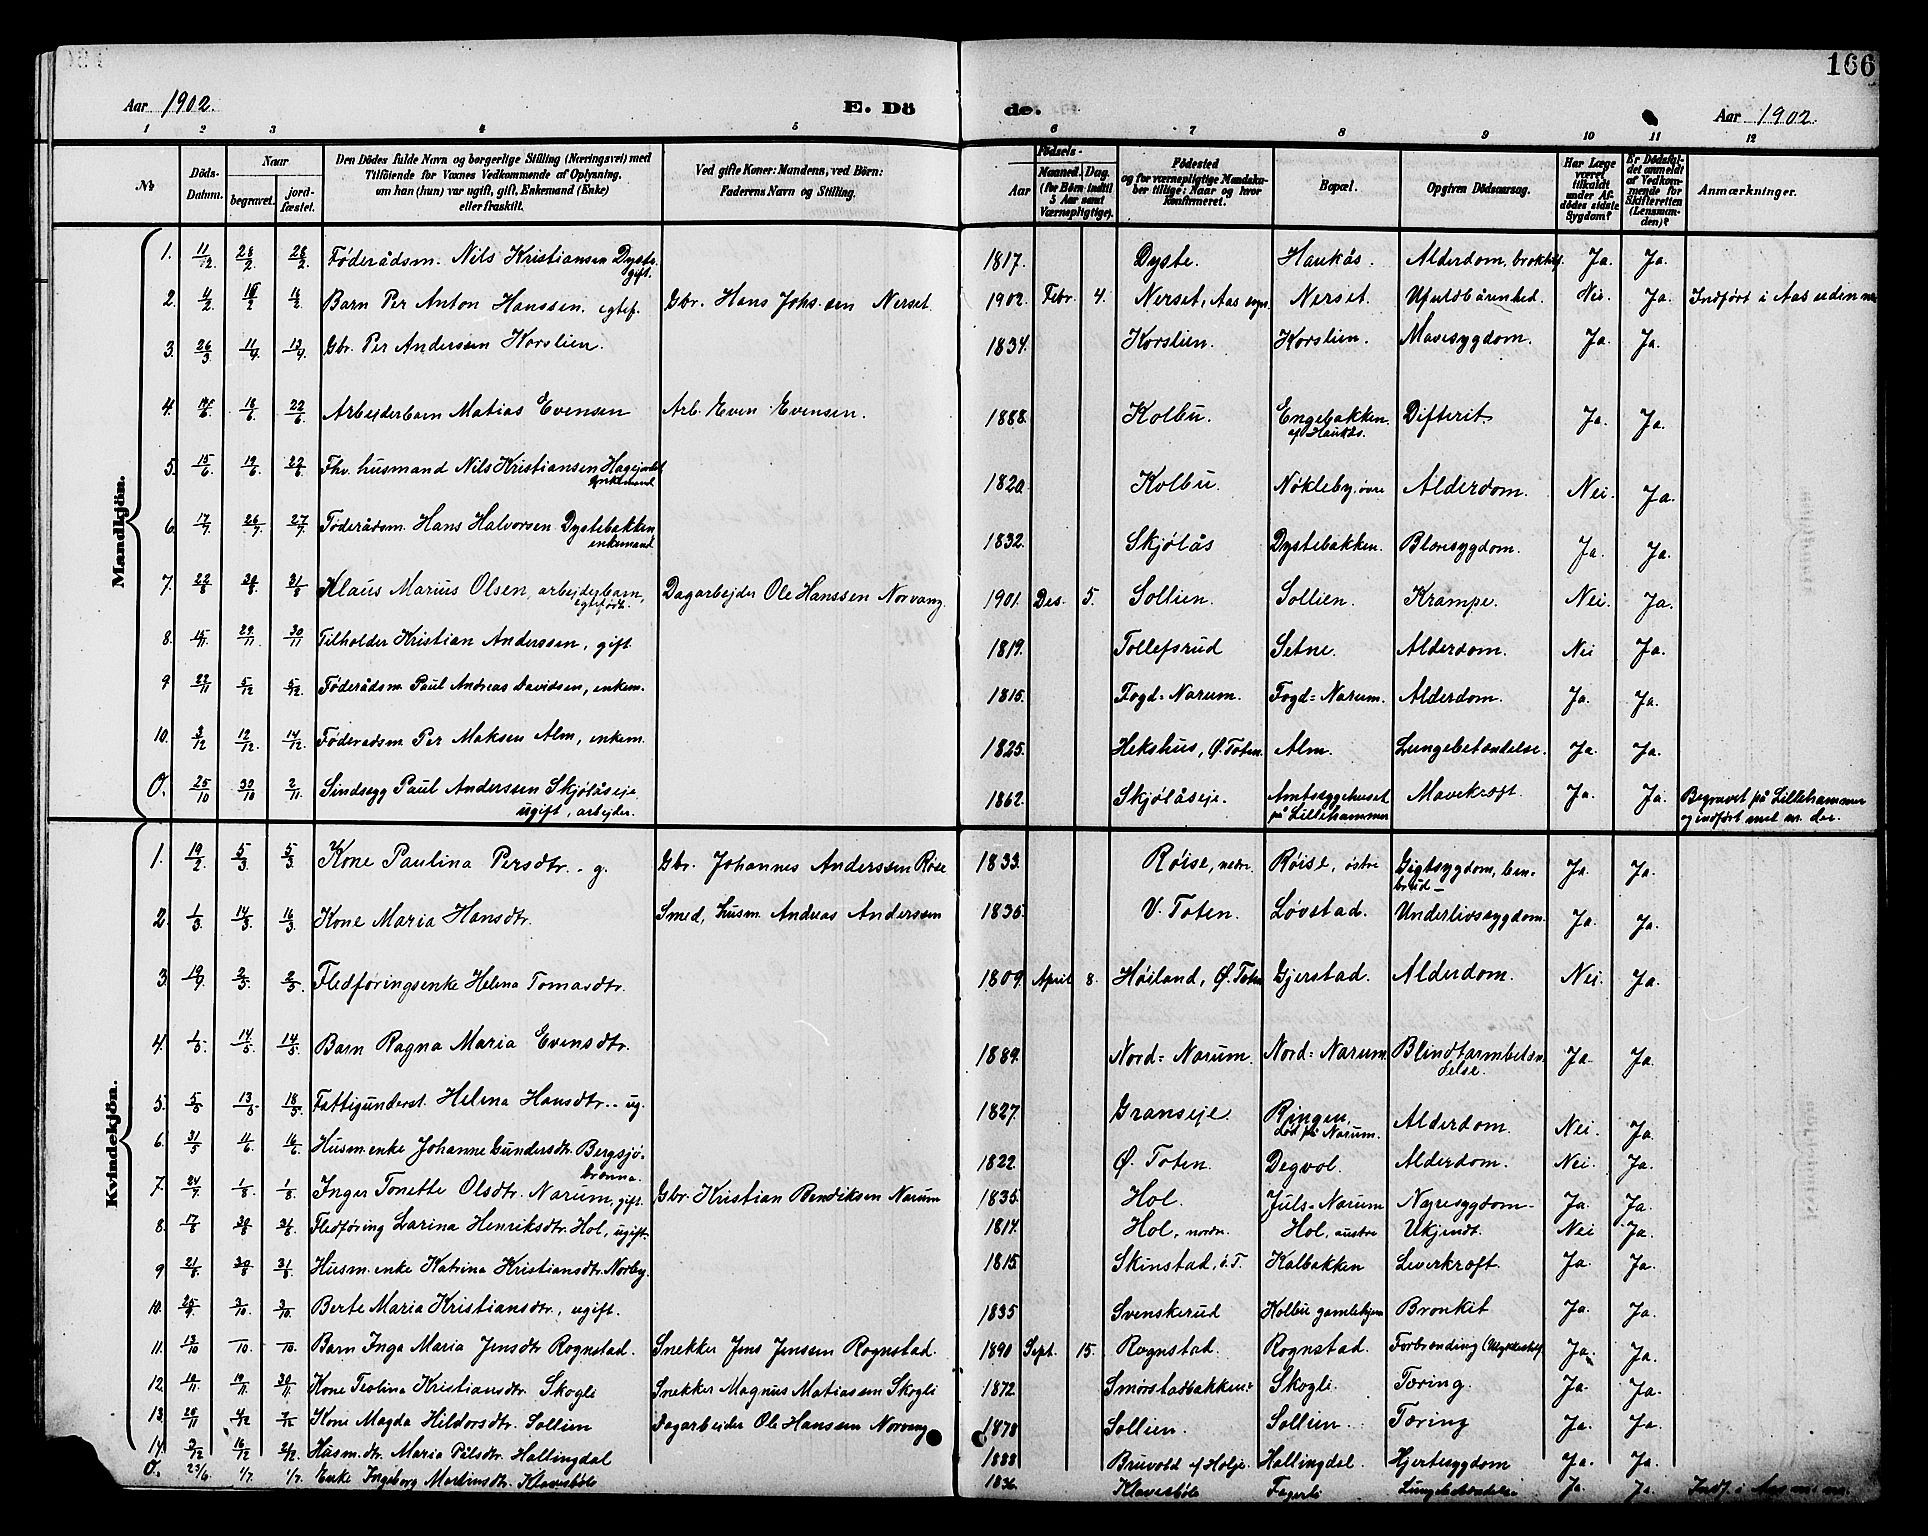 166
Aar 1902. E. Dö de. Aar 1902.
1 2 3 4 5 6 7 8 9 10 11 12
No Döds-Datum. Naar begravet. jordfæstet. Den Dödes fulde Navn og borgerlige Stilling (Næringsvei) med Tilföiende for Voxnes Vedkommende af Oplysning, om han (hun) var ugift, gift, Enkemand (Enke) eller fraskilt. Ved gifte Koner: Mandens, ved Börn: Faderens Navn og Stilling. Födsels- Aar Maaned. Dag. (for Börn indtil 5 Aar samt Værnepligtige). Födested og for værnepligtige Mandskaber tillige: Naar og hvor Konfirmeret. Bopæl. Opgiven Dödsaarsag. Har Læge været tilkaldt under Afdödes sidste Sygdom? Er Dödsfaldet anmeldt af Vedkommende for Skifteretten (Lensmanden)? Anmærkninger.
Mandkjön.
1. 11/2 28/2 28/2 Føderådsm. Nils Kristiansen Dyste gift. 1817. Dyste. Haukås. Alderdom, Ja. Ja.
2. 11/2 Barn Per Anton Hanssen. egtef. Gbr. Hans Johs.sen Nerset. 1902. Febr. 4. Nerset, Aas sogn. Nerset. Ufuldbårenhed. Nei. Ja. Indført i Aas uden
3. 26/3 11/4 13/4 Gbr. Per Anderssen Korslien. 1834. Korslien. Korslien. Mavesygdom. Ja. Ja.
4. 18/6 22/6 Arbejderbarn Matias Evensen Arb. Even Evensen. 1888. Kolbu. Engebakken af Haukås. Difterit. Ja. Ja.
5. 15/6 19/6 22/6 Fhv. husmand Nils Kristiansen Hagejordet enkemand 1820. Kolbu. Nøkleby, øvre Alderdom. Nei. Ja.
6. 17/7 26/7 27/7 Føderådsm. Hans Halvorsen Dystebakken enkemand 1832. Skjølås Dystebakken. Blæresygdom. Ja. Ja.
7. 22/8 30/8 31/8 Klaus Marius Olsen, arbejderbarn, egtefødt. Dagarbejder Ole Hanssen Norvang. 1901. Des. 5. Sollien. Sollien. Krampe. Nei. Ja.
8. 15/11 29/11 30/11 Tilholder Kristian Anderssen, gift 1819. Tollefsrud Setne. Alderdom. Nei Ja.
9 5/12 5/12 Føderådsm. Paul Andreas Davidsen, enkem. 1815. Fogd-Narum. Fogd-Narum. Alderdom. Ja. Ja.
10. 3/12 12/12 14/12 Føderadsm Per Maksen Alm, enkem. 1825. Hekshus, Ø. Toten. Alm. Lungebetændelse. Ja. Ja.
O. 25/10 30/10 2/11 Sindssyg Paul Anderssen Skjølåseje. ugift, arbejder. 1862. Skjølåseje. Amtssygehuset på Lillehammer Mavekræft. Ja. Ja. Begravet på Lillehammer og indført med nr. der.
Kvindekjön.
1. 19/2 5/3 5/3 Kone Paulina Persdtr. - g. Gbr. Johannes Anderssen Røise 1833. Røise, nedre. Røise, østre Gigtsygdom, benbrud - Ja. Ja.
2. 1/3 14/3 16/3 Kone Maria Hansdtr. Smed, husm. Andreas Anderssen 1835. V. Toten. Løvstad. Underlivssygdom. Ja. Ja.
3. 19/4 2/5 2/5 Fledføringsenke Helena Tomasdtr. 1809. April 8. Høiland, Ø. Toten Gjerstad. Alderdom. Nei. Ja.
4. 1/5 14/5 14/5 Barn Ragna Maria Evensdtr. 1889. Nord-Narum. Nord-Narum Blindtarmbetændelse. Ja. Ja.
5. 5/5 13/5 18/5 Fattigunderst. Helena Hansdtr. - ug. 1827. Granseje. Ringen, død på Narum. Alderdom. Nei. Ja.
6. 31/5 11/6 16/6 Husm.enke Johanne Gundersdtr. Bergsjøbrønna. 1822. Ø. Toten. Degvol. Alderdom. Nei. Ja.
7. 24/7 1/8 1/8 Inger Tonette Olsdtr. Narum, gift. Gbr. Kristian Bendiksen Narum 1835. Hol. Juls-Narum Nyresygdom. Ja. Ja.
8. 17/8 30/8 31/8 Fledføring Larina Henriksdtr. Hol, ugift. 1814. Hol, nordre Hol, austre Ukjendt. Nei Ja.
9 21/8 30/8 31/8 Husm.enke Katrina Kristiansdtr. Norby. 1815 Skinstad, ø. T. Kalbakken Leverkræft. Ja. Ja.
10. 25/9 3/10 3/10 Berte Maria Kristiansdtr., ugift. 1835 Svenskerud Kolbu gamlehjem Bronkit Ja. Ja.
11. 13/10 -/10 -/10 Barn Inga Maria Jensdtr Rognstad. Snekker Jens Jenssen Rognstad 1890 Sept. 15. Rognstad. Rognstad. Forbrænding (Ulykkestilf.) Ja. Ja.
12. 19/11 30/11 Kone Teolina Kristiansdtr. Skogli Snekker Magnus Matiassen Skogli 1872 Smørstadbakken. Skogli. Tæring. Ja. Ja.
13. 4/12 7/12 Kone Magda Hildorsdtr. Sollien Dagarbeider Ole Hanssen Norvang 1878 Sollien. Sollien. Tæring Ja. Ja.
14. 9/12 16/12 Husm.dtr. Maria Pålsdtr. Hallingdal 1888 Bruvold af Holje. Hallingdal. Hjertesygdom Ja. Ja.
O. 23/6. 1/7. 1/7. Enke Ingeborg Martinsdtr. Klavesbøle 1836 Klavesbøle Fagerli Lungebetændelse Ja. Ja. Indf. i Aas